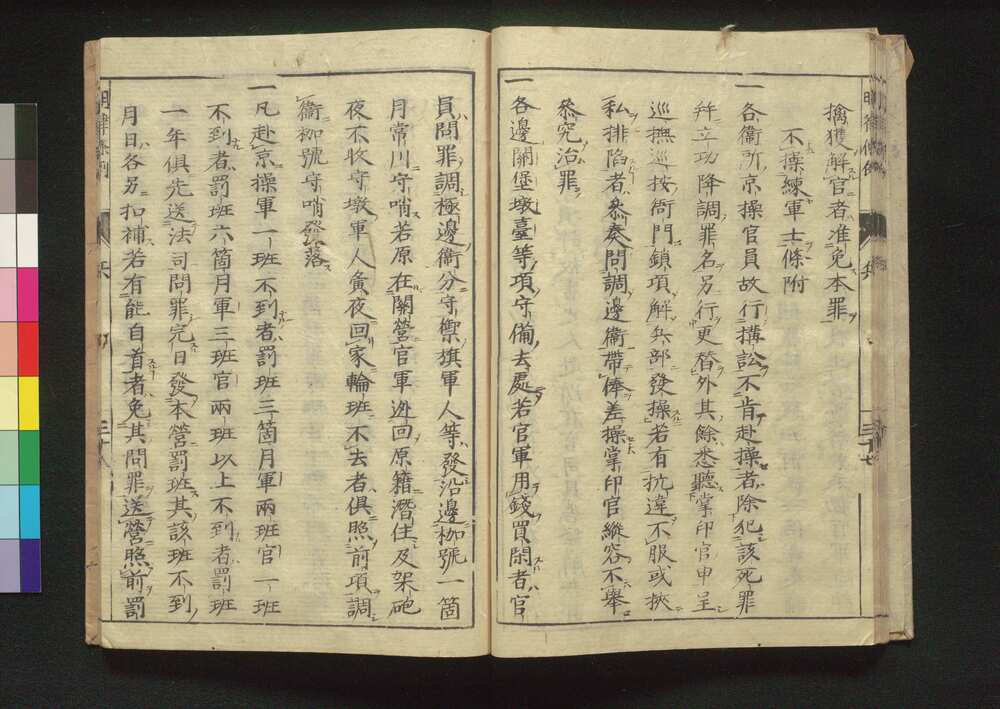 擒獲解官者准免本罪
不操練軍士條附
一各衞所京操官員故行搆訟不肯赴操者除犯該死罪
幷立功降調罪名另行更替外其餘悉聽掌印官申呈
巡撫巡按衙門鎖項解兵部發操若有抗違不服或挾
私排陷者參奏問調邊衞帶俸差操掌印官縱容不舉
參究治罪
一各邊關堡墩臺等項守備去處若官軍用錢買閑者官
員問罪調極邊衞分守禦旗軍人等發沿邊枷號一箇
月常川守哨若原在關營官軍逃回原籍潛住及架砲
夜不收守墩軍人黃夜回家輪班不去者俱照前項調
衞枷號守哨發落
一凡赴京操軍一班不到者罰班三箇月軍兩班官一班
不到者罰班六箇月軍三班官兩班以上不到者罰班
一年俱先送法司問罪完日發本營罰班其該班不到
月日各另扣補若有能自首者免其問罪送營照前罰
明律條例
兵
三十八
三十七